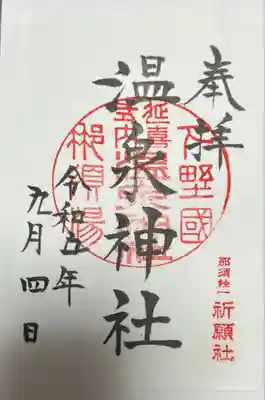 奉拝
下野國
延喜式内
温泉神社
那須湯
令和五年
九月四日
那須総一
祈願社